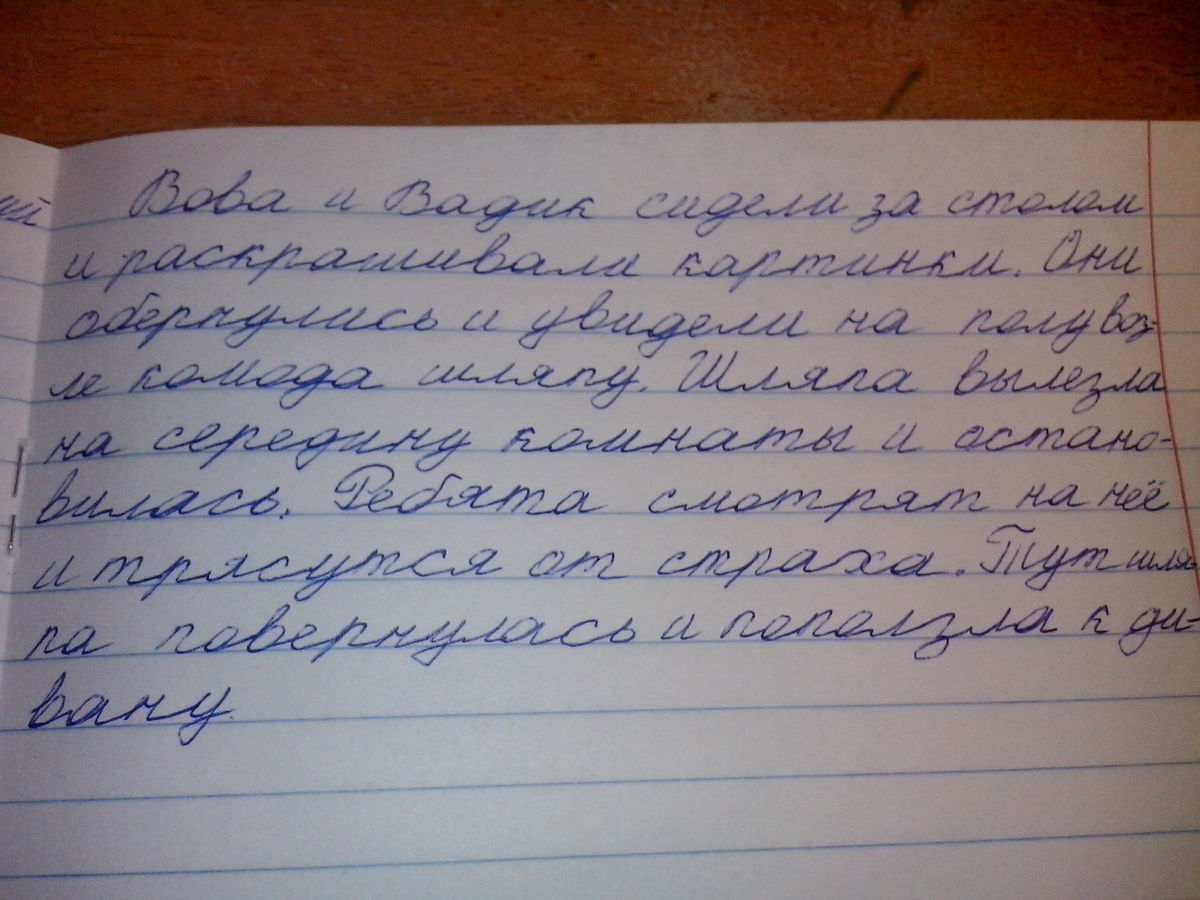 Вова и Вадик сидели за столом
и раскрашивали картинки. Они
обернулись и увидели на полу воз-
ле комода шляпу. Шляпа вылезла
на середину комнаты и остано-
вилась. Ребята смотрят на неё
и трясутся от страха. Тут шля-
па повернулась и поползла к ди-
вану.